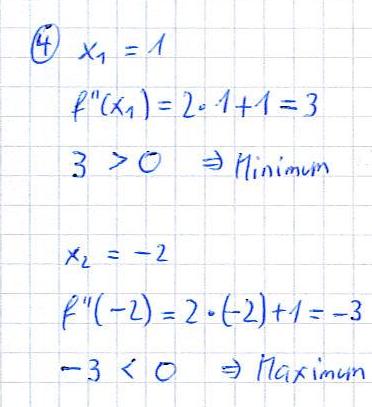 ④ x₁ = 1
f''(x₁) = 2·1+1 = 3
3 > 0 ⇒ Minimum
x₂ = -2
f''(-2) = 2·(-2)+1 = -3
-3 < 0 ⇒ Maximum